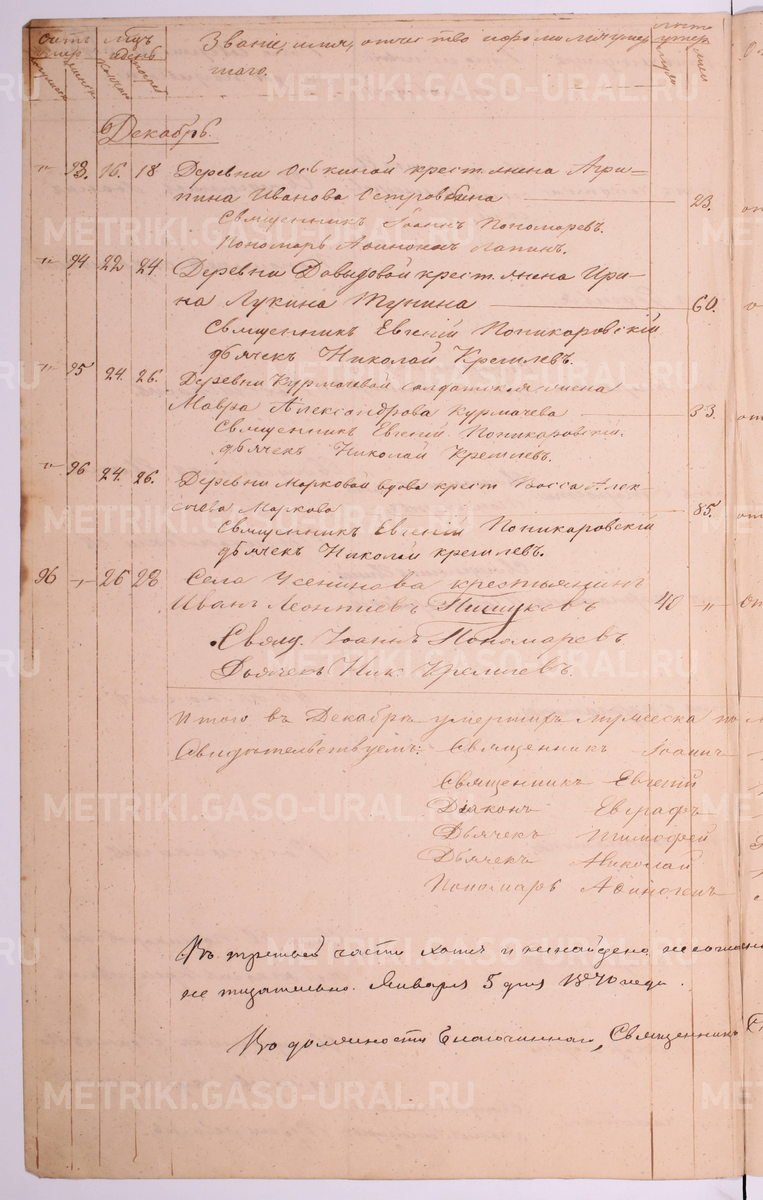 Счетъ умер
Мцъ и день
Званіе, имя, отчество и фамилія умер
шаго.
Декабрь.
" 93. 16. 18 Деревни Оськиной крестьянина Агри-
пина Иванова Островкина 23.
Священникъ Іоаннъ Пономаревъ.
Пономарь Лапинъ.
" 94 22 24. Деревни Давидовой крест. жена Ири-
на Лукина Тунина 60.
Священникъ Евгеній Попикаровскій
дьячекъ Николай Кремлевъ.
" 95 24. 26. Деревни Курмачевой солдатская жена
Мавра Александрова Курмачева 33.
Священникъ Евгеній Попикаровскій.
дьячекъ Николай Кремлевъ.
" 96 24. 26. Деревни Марковой вдова крест. Алек
сѣева Маркова 85.
Священникъ Евгеній Попикаровскій
дьячекъ Николай Кремлевъ.
96 26 28 Села крестьянинъ
Иванъ Леонтіевъ Пищуковъ 48 "
Свящ. Іоаннъ Пономаревъ.
Дьячекъ Ник. Кремлевъ.
Итого въ Декабрѣ умершихъ мужеска по
Свидѣтельствуемъ: Священникъ Іоаннъ
Священникъ Евгеній
Діаконъ Евграфъ
Дьячекъ Тимофей
Дьячекъ Николай
Пономарь Афиногенъ
Въ третьей части хотя и ненайдено
не тщательно. Января 5 дня 1870 года.
Въ должности Благочиннаго, Священникъ
METRIKI.GASO-URAL.RU